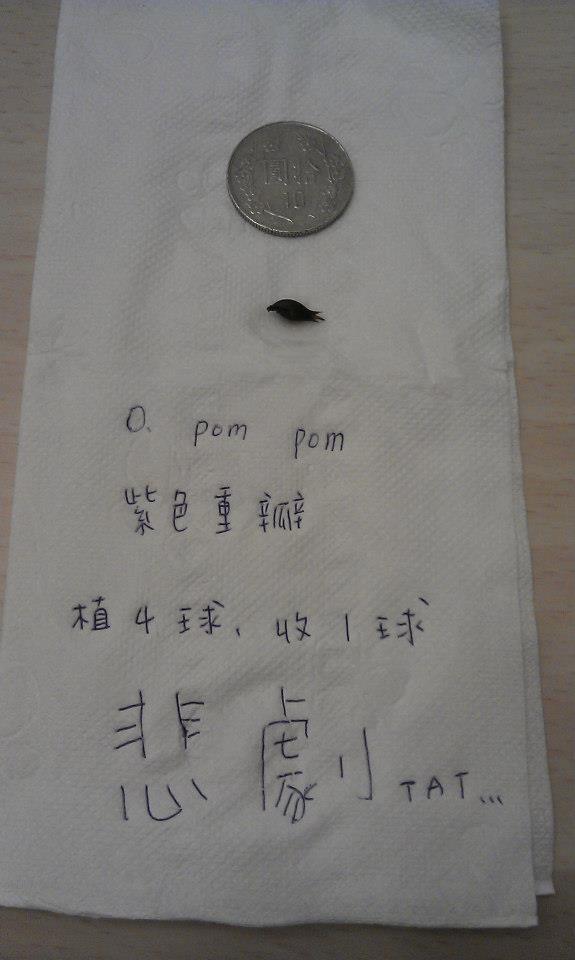 拾圓
10
O. pom pom
紫色重瓣
植4球、收1球
悲劇TAT...